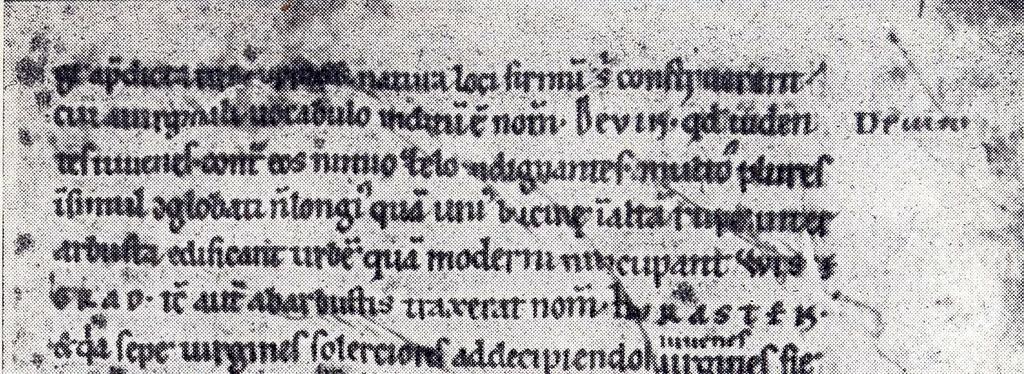 natura loci firmū ꝯstruerent
cui auirginali uocabulo inditū ē nom̄. Devin. qd uiden Deuin
tes iuuenes contͣ eos nimio zelo indignantes. multo plures
īsimul ꝯglobati n̄ longi⁹ quā uni⁹ bucine ī altā rupe inter
arbusta edificant urbē quā moderni nuncupant Wis s
GRAD. tc̄ aut̄ abarbustis traxerat nom̄. HVRASTEN.
& qͥa sepe uirgines solerciores addecipiendos iuuenes uirgines fie